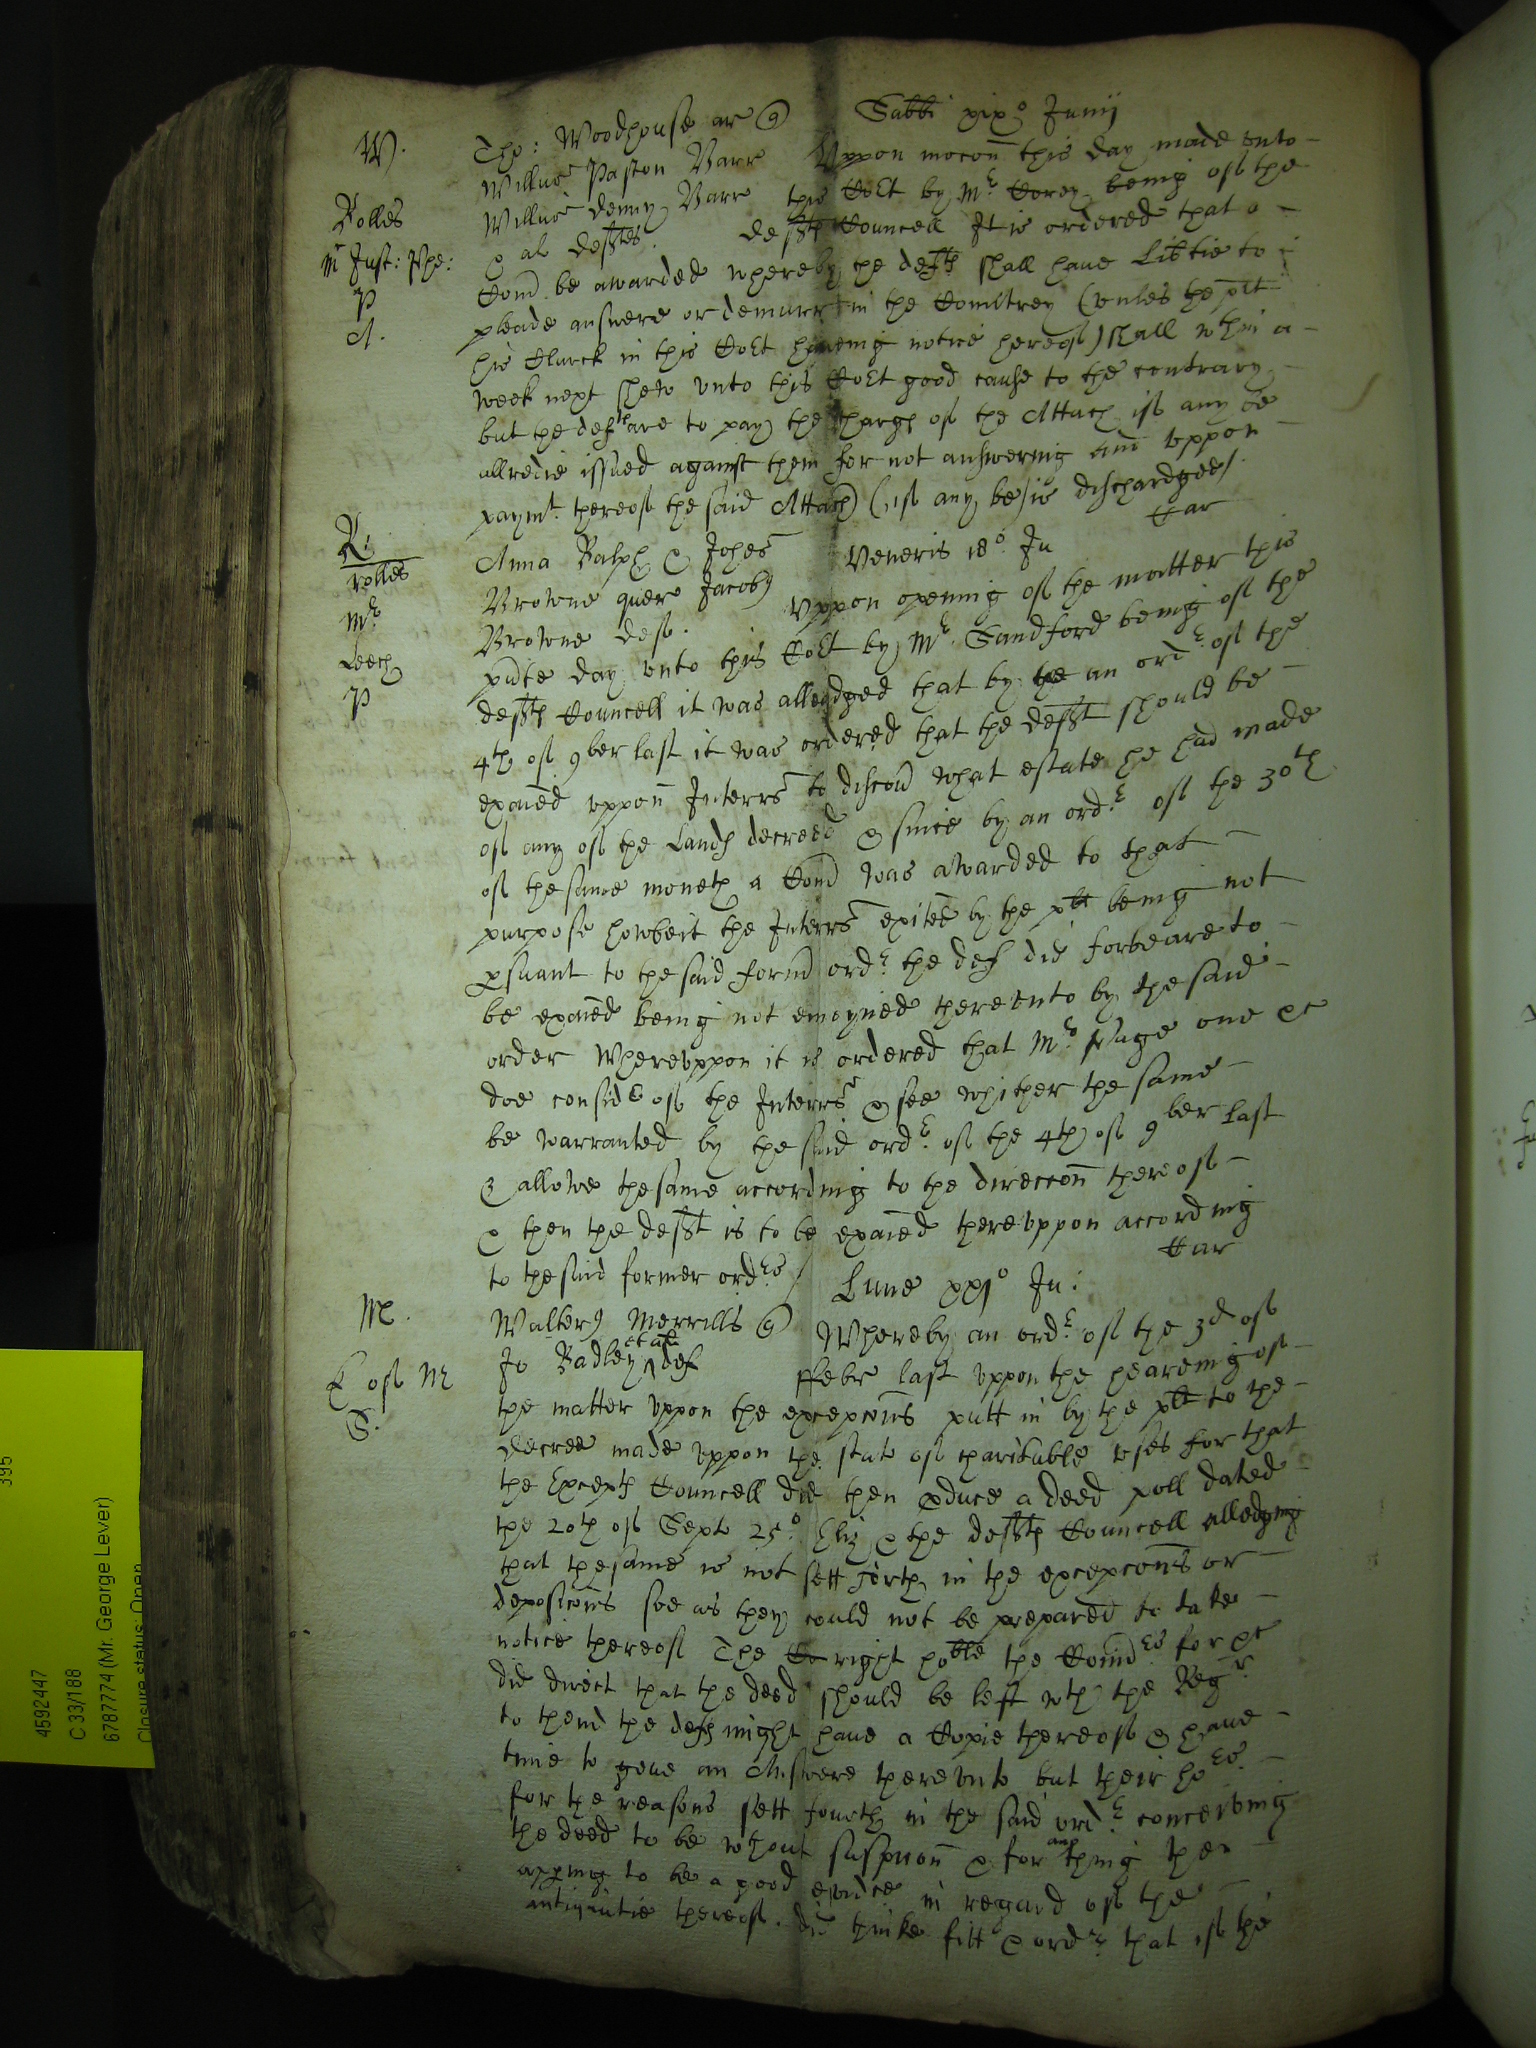 W.
Rolles
Mr Just: Phe:
P
A.
Tho: Woodhouse ar q
Willus Paston Barr
Willus denny Barr
& al deftes.
Sabbi xixo Junij
Vppon mocon this day made vnto
this Cort by Mr Corey being of the
defts Councell It is ordered that a
Com be awarded whereby the defts shall haue Libtie to
pleade answere or demurr in the Countrey (vnles the plt
his Clarck in this Cort haueing notice hereof) shall wthin a
week next shew vnto this Cort good cause to the contrary
but the defts are to pay the charge of the Attach if any be
allredie issued against them for not answering and vppon
paymt thereof the said Attach (if any be) is dischardged/.
Car
R.
rolles
Mr
Leech
P
Anna Ralph & Johes
Browne quer Jacobus
Browne def.
Veneris 18o Ju
Vppon opening of the matter this
pnte day vnto this Cort by Mr Sandford being of the
defts Councell it was alledged that by the an ordr of the
4th of 9ber last it was ordered that the deft should be
exaied vppon Interrs to discou what estate he had made
of any of the Lands decreed & since by an ordr of the 30th
of the same moneth a Com was awarded to that
purpose howbeit the Interrs exited by the plt being not
psuant to the said form ordr the def did forbeare to
be exaied being not enioyned therevnto by the said
order Wherevppon it is ordered that Mr Page one &c
doe consider of the Interrs & see whither the same
be warranted by the said ordr of the 4th of 9ber last
& allowe the same according to the direccon thereof
& then the deft is to be exaied therevppon according
to the said former ordrs /
Car
M.
S.
Walterus Merrills q
Jo Badley et al def
Lune xxjo Ju:
Whereby an ordr of the 3d of
ffebr last vppon the heareing of
the matter vppon the excepcons putt in by the plt to the
decree made vppon the statu of charitable vses for that
the Excepts Councell did then pduce a deed poll dated
the 20th of Septe 25o Eliz & the defts Councell alledging
that the same is not sett forth in the excepcons or
deposicons soe as they could not be prepared to take
notice thereof The right hoble the Comrs for &c
did direct that the deed should be left wth the Regr
to thend the defts might haue a Copie thereof & haue
time to geue an Answere therevnto but their hors
for the reasons sett fourth in the said ordr conceiving
the deed to be wthout suspicon & for any thing then
apping to be a good evidce in regard of the
antiquitie thereof. did thinke fitt & ordr that if the
395
4592447
C 33/188
6787774 (Mr. George Lever)
Closure status: Open